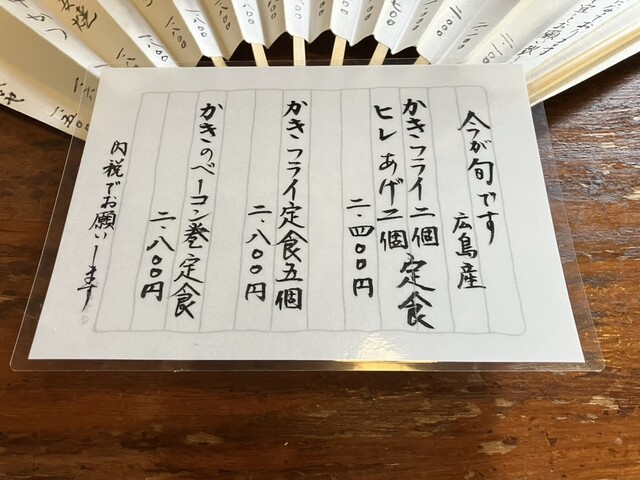 今が旬です
広島産
かきフライ二個
ヒレあげ二個
定食
二.四〇〇円
かきフライ定食五個
二.八〇〇円
かきのベーコン巻定食
二.八〇〇円
内税でお願いします